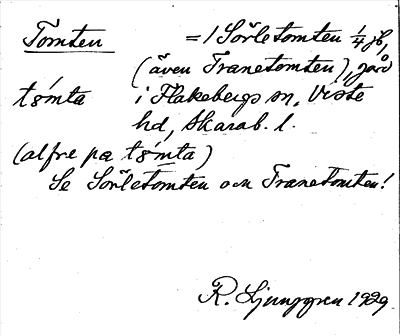 Tomten = 1 Sörletomten 1/4 jb,
(även Tranetomten), gård
tǿmta i Flakebergs sn, Viste
hd, Skarab. l.
(alfre pa tǿmta)
Se Sörletomten och Tranetomten!
R. Ljunggren 1929